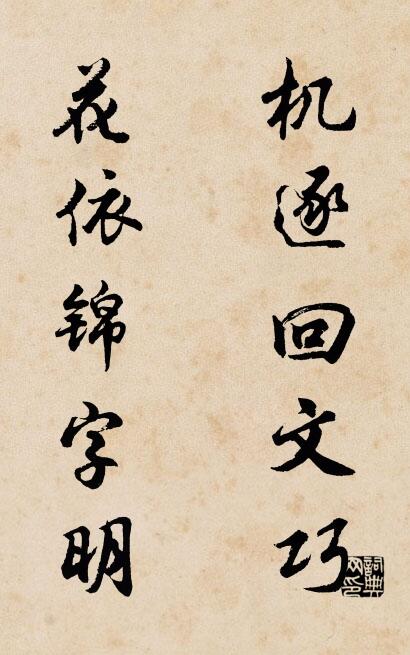 机逐回文巧
花依锦字明
詞典网印